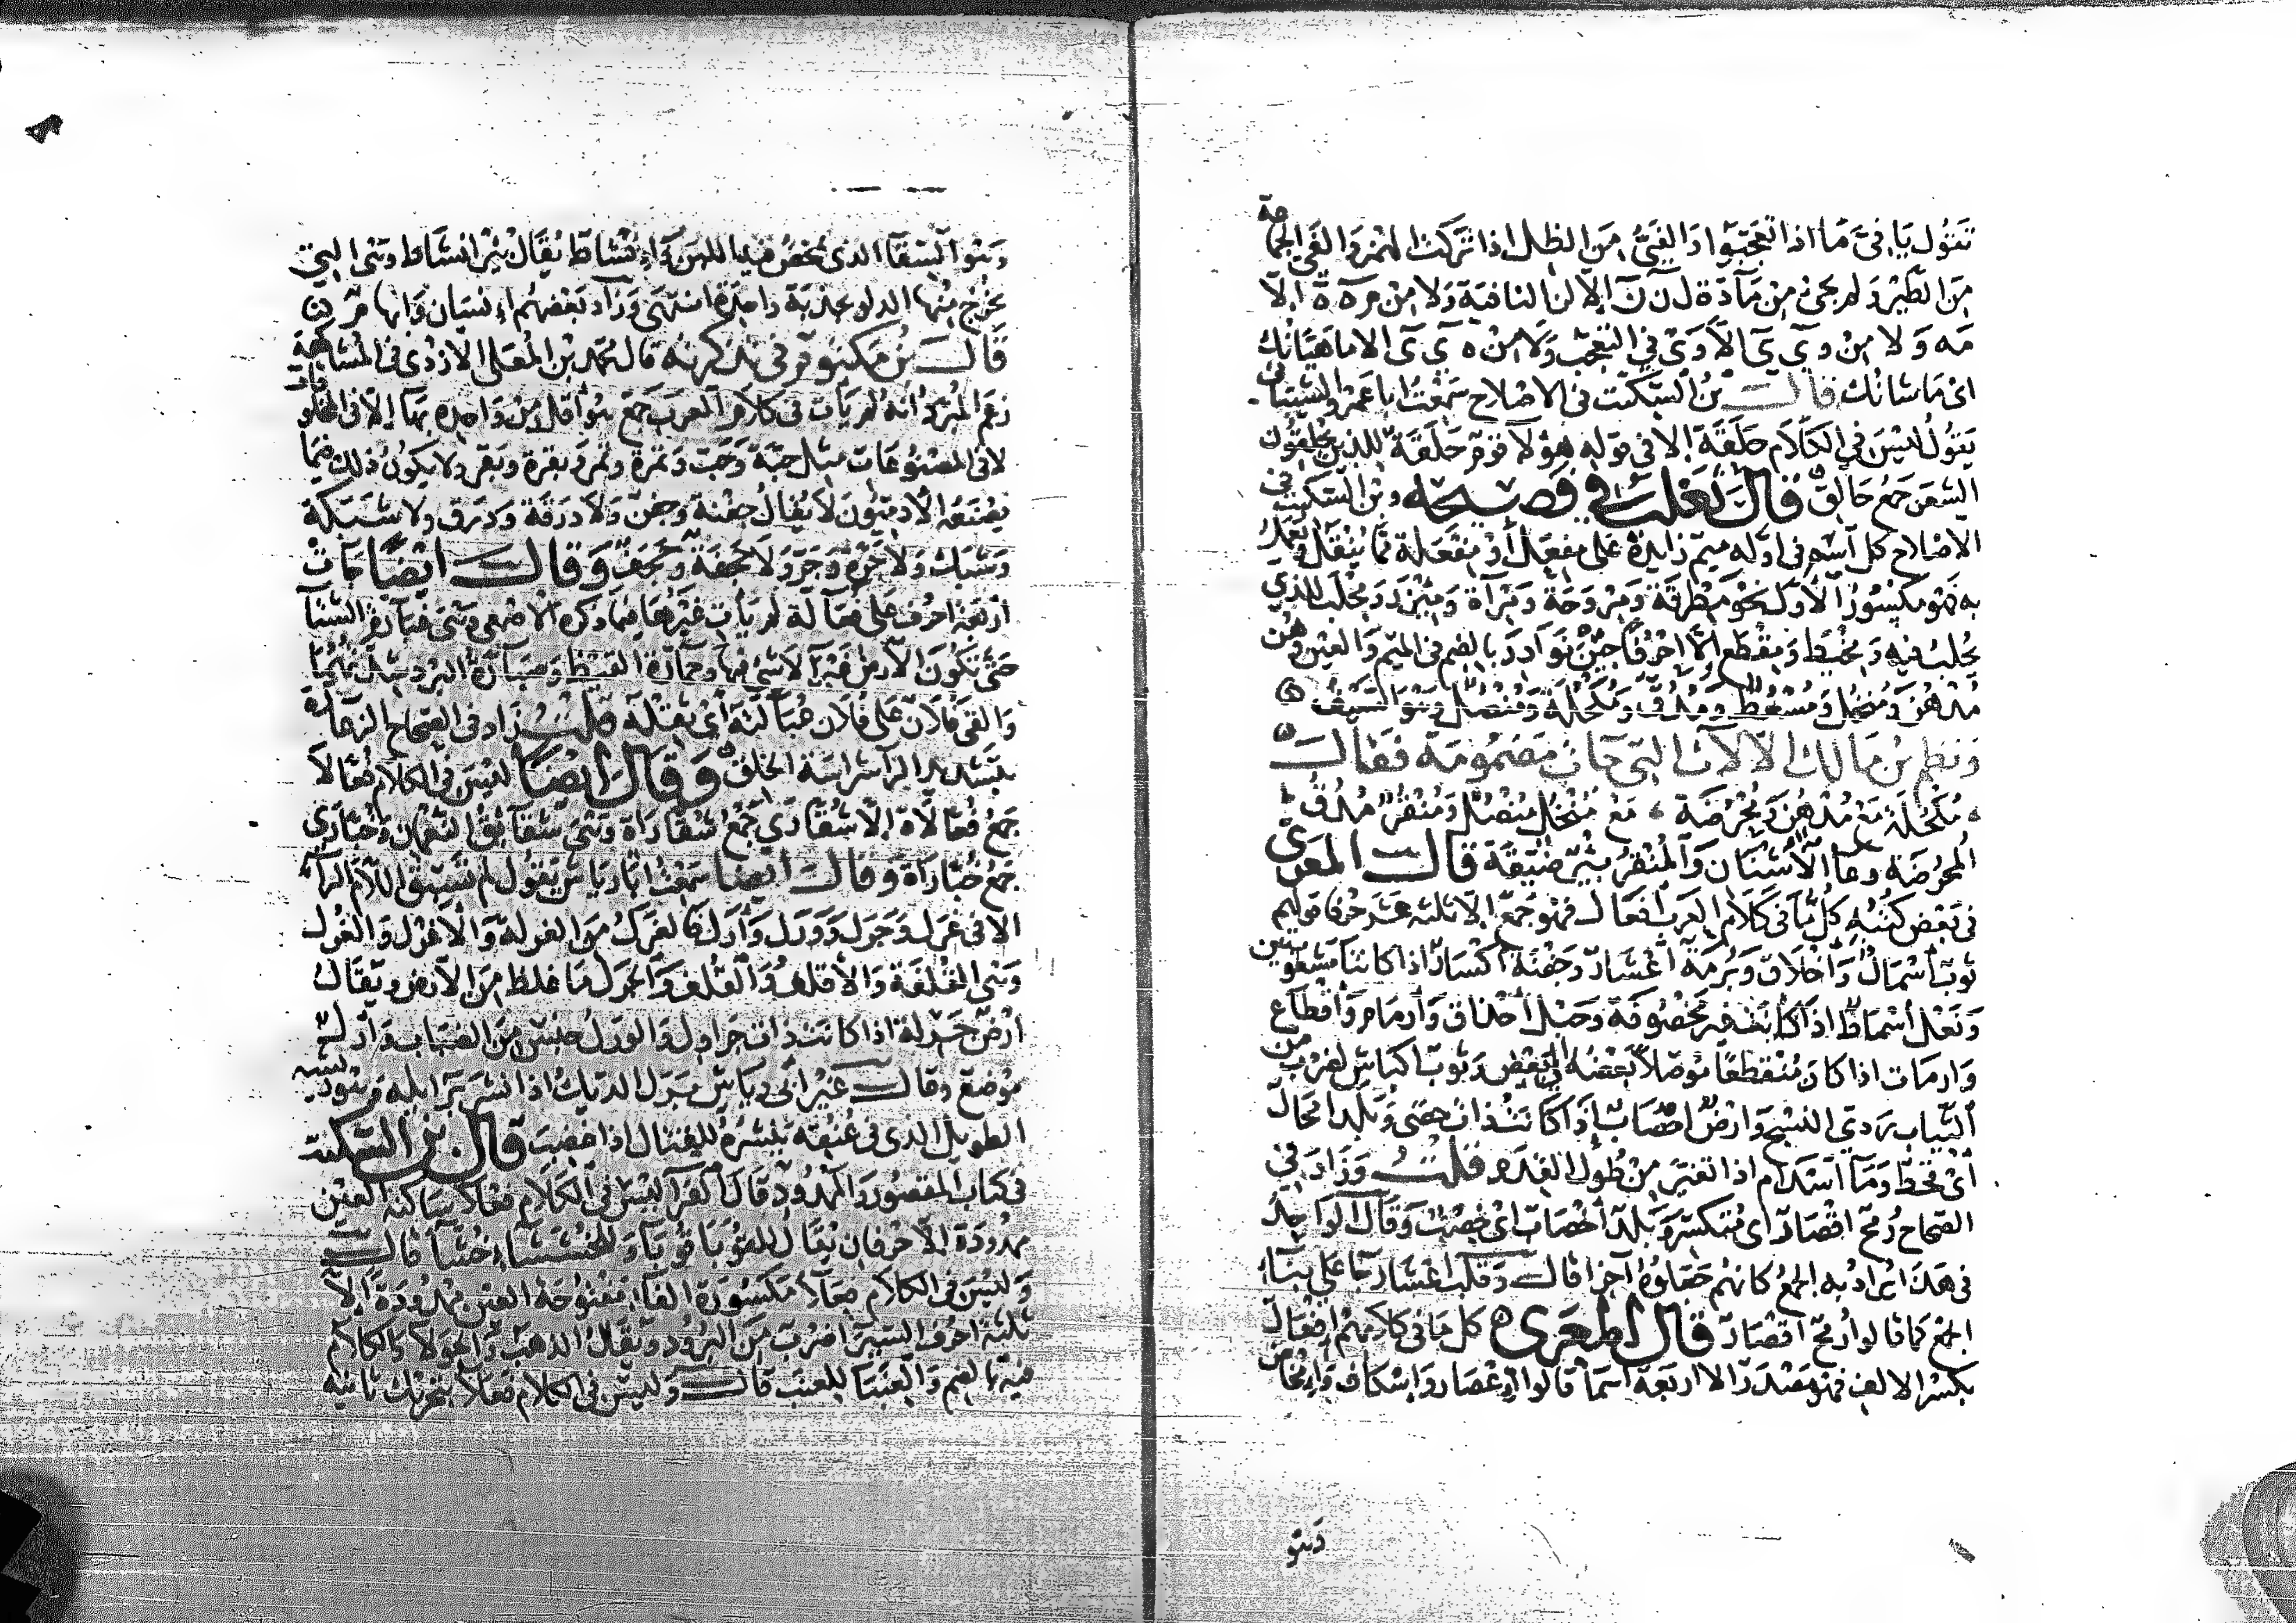 تقول يا فيّ ما اذا تعجبوا والفيُّ من الظل اذا تركت الهمز والفي الجماعة
من الطير ولم يجئ من مادة ل ن ن الا لن النافية ولا من م ه ه الا
مه ولا من و ي ي الا وي في التعجب ولا من ه ي ي الا ما هيّانك
اى ما شانك قال بن السكيت فى الاصلاح سمعت ابا عمرو الشيباني
يقول ليس في الكلام حَلَقة الا فى قولهم هؤلا قوم حلقة للذين يحلقون
الشعر جمع حالق قال ثعلب في فصيحه وبن السكيت في
الاصلاح كل اسم فى اوله ميم زايدة على مفعل او مفعلة مما ينقل ويعمل
به فهو مكسور الاول نحو مطرقة ومروحة ومرآة ومئزر ومحلب للذي
يحلب فيه ومخيط ومقطع الا احرفا جئن نوادر بالضم فى الميم والعين وهن
مدهن ومنخل ومسعط ومدق ومكحلة ومنصل وهو السيف
ونظم بن مالك الآلات التى جات مضمومة فقال
مكحلة مع مدهن ومحرضة ، مع منخل منصل ومنقر مدق
المحرضة وعا الاشنان والمنقر بئر ضيقة قال المعري
في بعض كتبه كل ما فى كلام العرب افعال فهو جمع الا ثلثة عشر حرفا قولهم
ثوب اسمال واخلاق وبرمة اعشار وجفنة اكسار اذا كانتا مشعوبتين
ونعل اسماط اذا كانت غير مخصوفة وحبل احذاق وارمام واقطاع
وارمات اذا كان متقطعا موصلا بعضه الى بعض وثوب اكباش لضرب من
الثياب ردي النسج وارض احصاب اذا كانت ذات حصى وبلد امحال
أى قحط وما اسدام اذا تغير من طول القدم قلت وزاد في
الصحاح رمح اقصاد اى متكسر وبلد اخصاب اى خصب وقال الواحد
فى هذا يراد به الجمع كانهم جعلوه اجزا قال وقلب اعشار جا على بنا
الجمع كما قالوا رمح اقصاد قال المعرى كل ما فى كلامهم افعال
بكسر الالف فهو مصدر الا اربعة اسما قالوا اعصار واسكاف وامخاض
وهو
وهو السقا الذى يمخض فيه اللبن وانشاط يقال بئر انشاط وهى التي
يخرج منها الدلو بجذبة واحدة انتهى وزاد بعضهم انسان وابهام
قال بن مكتوم فى تذكرته قال محمد بن المعلى الازدى فى المشاكهة
زعم المبرد انه لم يات فى كلام العرب جمع هو اقل من واحده بها الا فى المخلوقات
لا فى المصنوعات مثل حبة وحب وتمرة وتمر وبقرة وبقر ولا يكون ذلك فيما
يصنعه الآدميون لا يقال جفنة وجفن ولا درقة ودرق ولا شبكة
وشبك ولا جرة وجر ولا جحفة وجحف وقال ايضا جات
اربعة احرف على فعالة لم يات غيرها فيما ذكره الاصمعى وهى غبارة الشتا
حتى تكون الارض غبرا لا شى فيها وحمارة القيظ وصبارة البرد شدته
والقى فلان على فلان عبالته أى ثقله قلت زاد فى الصحاح الزعارة
بتشديد الرا شراسة الخلق وقال ايضا ليس فى الكلام فعالا
جمع فعالاة الا شقارى جمع شقاراة وهى شقائق النعمان وخبازى
جمع خبازاة وقال ايضا سمعت ابا رياش يقول لم تسبق اللام الرا
الا فى غرل وجرل وورل وأرل فالغرل من الغرلة والاغرل والغرل
وهى القلفة والاقلف والقلف والجرل ما غلظ من الارض ويقال
ارض جرلة اذا كانت ذات جراول والورل جنس من الضباب وأرل
موضع وقال غير ابى رياش برل الديك اذا نشر برائله وهو ريشه
الطويل الذى فى عنقه ينشره للقتال اذا غضب قال بن السكيت
فى كتاب المقصور والممدود قال الفرا ليس فى الكلام فعلا ساكنة العين
ممدودة الا حرفان يقال للقوبا قوبآء وللخششاء خشآ قال
وليس فى الكلام فعلا مكسورة الفا مفتوحة العين ممدودة الا
ثلثة احرف السيرا ضرب من البرود ويقال الذهب والحولا والكلام
فيها بالضم والعنبا للعنب قال وليس فى الكلام فعلا بتحريك ثانيه